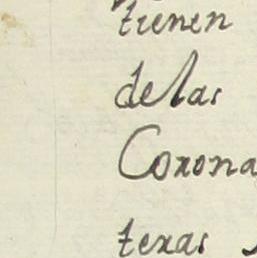 tienen
delas
Corona
texas